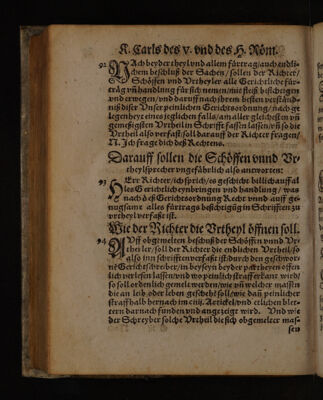 K. Carls des v. vnd des H. Röm.
92 NAch beyder theyl vnd allem fürtrag/auch endli-
chem beschluß der Sachen/sollen der Richter/
Schöffen vnd Vrtheyler alle Gerichtliche für-
träg vñ handlung für sich nemen/mit fleiß besichtigen
vnd erwegen/vnd darauff nach jrem besten verständ-
nuß diser Vnser peinlichen Gerichtsordnung/nach ge-
legenheyt eines jeglichen falls/am aller gleichesten vñ
gemeßigesten Vrtheil in Schrifft fassen lassen/vñ so die
Vrtheil also verfast/soll darauff der Richter fragen/
N. Ich frage dich deß Rechtens.
Darauff sollen die Schöffen vnnd Vr-
theylsprecher vngefährlich also antworten:
93 HErr Richter/ich sprich/es geschicht billich auff al-
les Gerichtlich einbringen vnd handlung/was
nach deß Gerichtsordnung Recht vnnd auff ge-
nugsame alles fürtrags besichtigūg in Schrifften zu
vrtheyl verfast ist.
Wie der Richter die Vrtheyl öffnen soll.
94 AVff obgemelten beschluß der Schöffen vnnd Vr-
theyler/soll der Richter die endlichen Vrtheil/so
also inn schrifften verfast ist/durch den geschwor-
nē Gerichtschreiber/in beyseyn beyder partheyen offen
lich verlesen lassen/vnd wo peinlich straff erkant wird/
so soll ordenlich gemelt werden/wie vñ welcher massen
die an leib oder leben geschehē soll/wie dañ peinlicher
straff halb hernach im ciiij. Artickel/vnd etlichen blet-
tern darnach funden vnd angezeigt wird. Vnd wie
der Schreyber solche Vrtheil die sich obgemelter mas-
sen